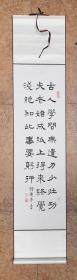 古人學問無遺力少壯功
夫老始成紙上得來終覺
淺絕知此事要躬行